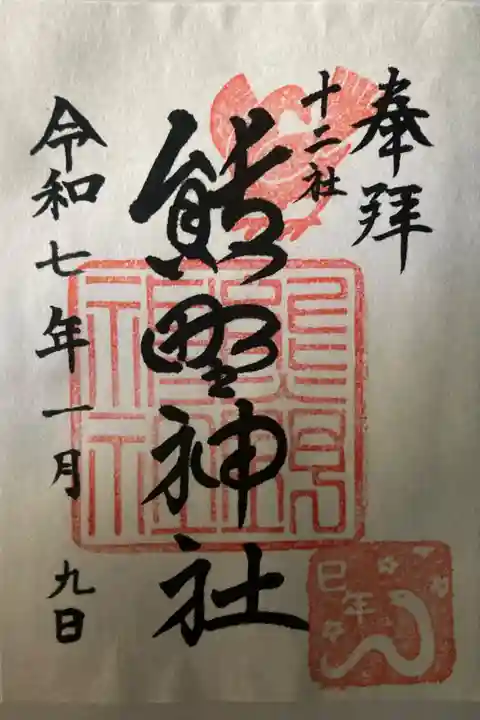 奉拝
十二社
熊野神社
令和七年一月九日
巳年